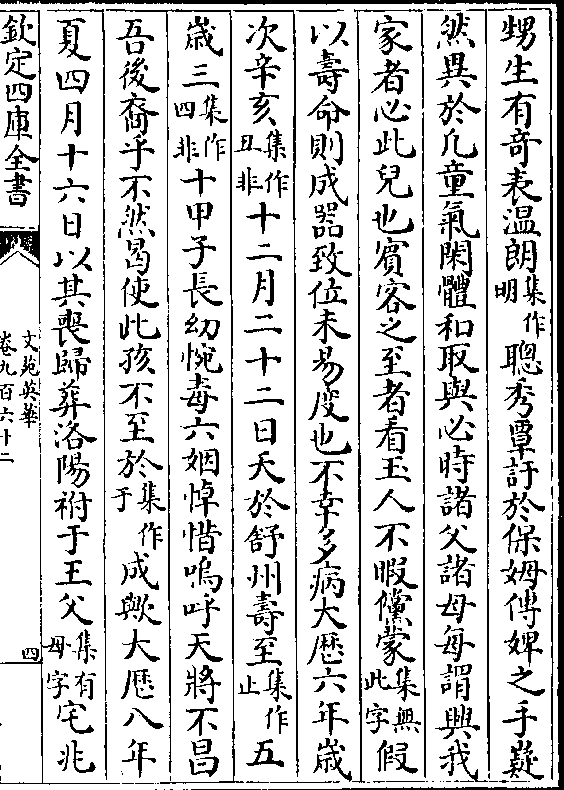 甥生有奇表温朗集作明聰秀覃訏於保姆傅婢之手嶷
然異於凡童氣閑體和取與必時諸父諸母每謂興我
家者必此兒也賓客之至者看玉人不暇儻蒙集無此字假
以壽命則成器致位未易度也不幸多病大厯六年歳
次辛亥集作丑非十二月二十二日夭於舒州壽至集作止五
歳三集作四非十甲子長幼惋毒六姻悼惜嗚呼天將不昌
吾後裔乎不然曷使此孩不至於集作于成歟大厯八年
夏四月十六日以其喪歸葬洛陽祔于王父集有母字宅兆
欽定四庫全書
文苑英華
卷九百六十二
四